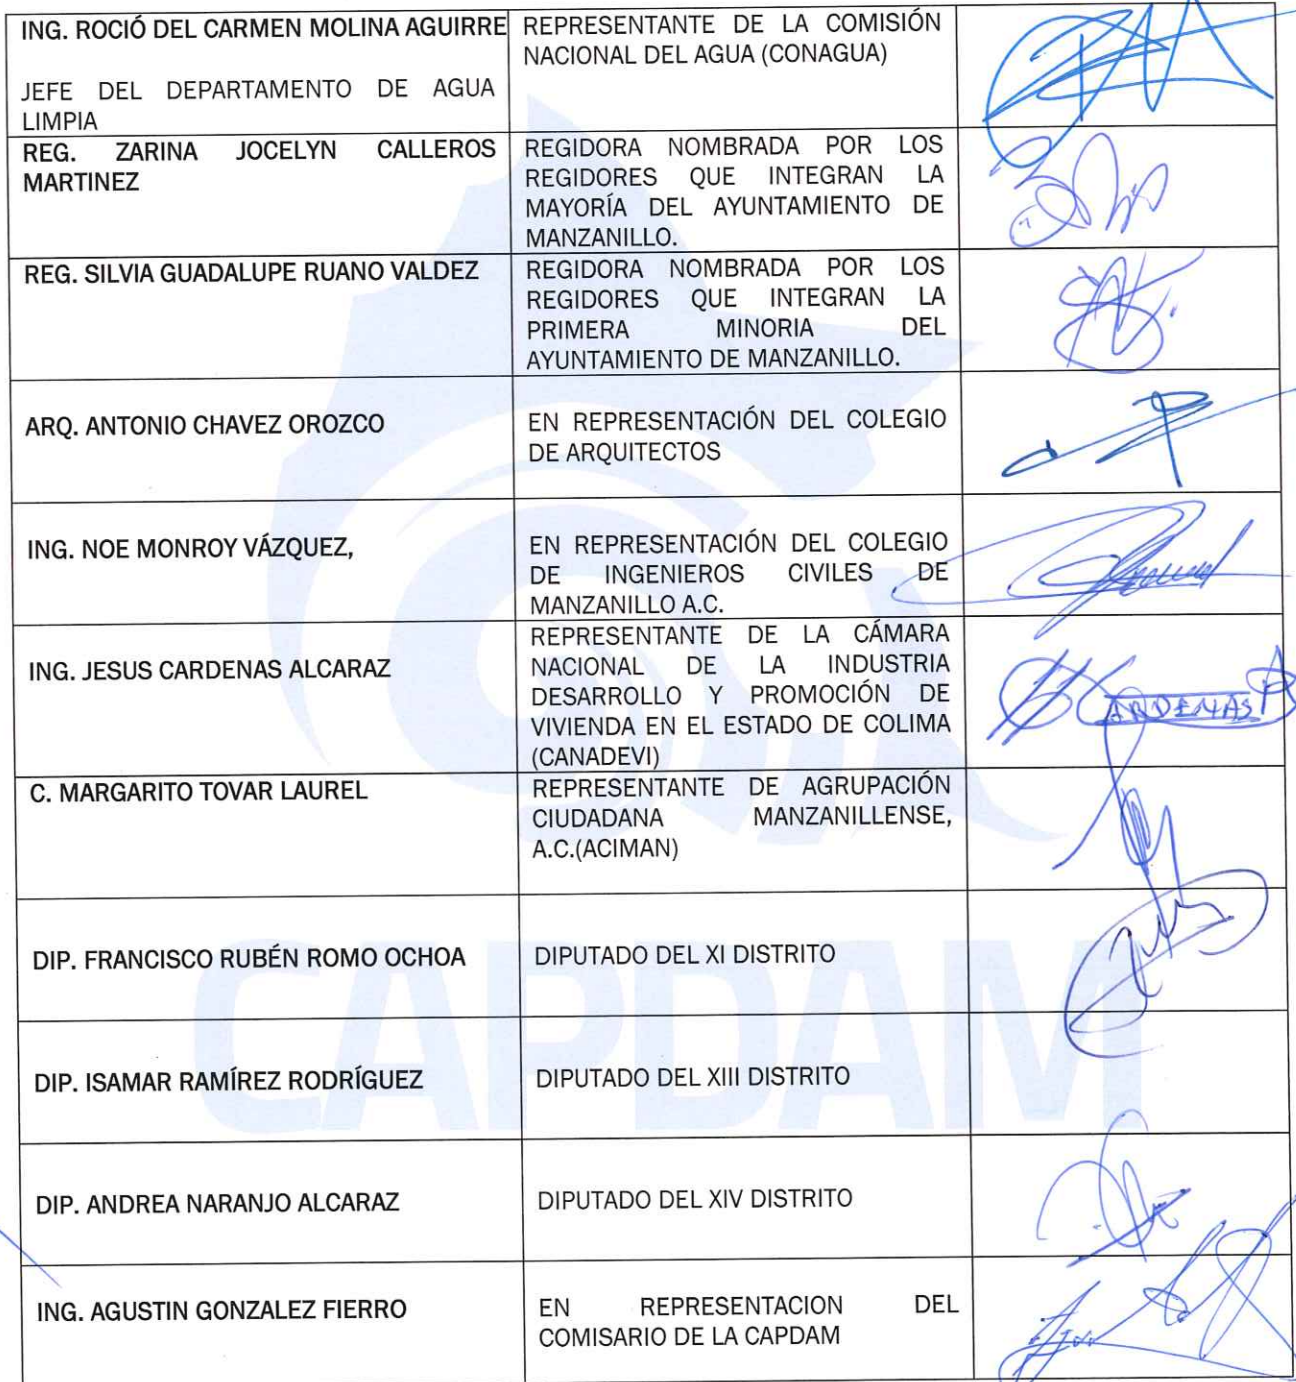 ING. ROCIÓ DEL CARMEN MOLINA AGUIRRE
JEFE DEL DEPARTAMENTO DE AGUA
LIMPIA
REPRESENTANTE DE LA COMISIÓN
NACIONAL DEL AGUA (CONAGUA)
REG. ZARINA JOCELYN CALLEROS
MARTINEZ
REGIDORA NOMBRADA POR LOS
REGIDORES QUE INTEGRAN LA
MAYORÍA DEL AYUNTAMIENTO DE
MANZANILLO.
REG. SILVIA GUADALUPE RUANO VALDEZ
REGIDORA NOMBRADA POR LOS
REGIDORES QUE INTEGRAN LA
PRIMERA MINORIA DEL
AYUNTAMIENTO DE MANZANILLO.
ARQ. ANTONIO CHAVEZ OROZCO
EN REPRESENTACIÓN DEL COLEGIO
DE ARQUITECTOS
ING. NOE MONROY VÁZQUEZ,
EN REPRESENTACIÓN DEL COLEGIO
DE INGENIEROS CIVILES DE
MANZANILLO A.C.
ING. JESUS CARDENAS ALCARAZ
REPRESENTANTE DE LA CÁMARA
NACIONAL DE LA INDUSTRIA
DESARROLLO Y PROMOCIÓN DE
VIVIENDA EN EL ESTADO DE COLIMA
(CANADEVI)
CARDENAS
C. MARGARITO TOVAR LAUREL
REPRESENTANTE DE AGRUPACIÓN
CIUDADANA MANZANILLENSE,
A.C.(ACIMAN)
DIP. FRANCISCO RUBÉN ROMO OCHOA
DIPUTADO DEL XI DISTRITO
CAPDAM
DIP. ISAMAR RAMÍREZ RODRÍGUEZ
DIPUTADO DEL XIII DISTRITO
DIP. ANDREA NARANJO ALCARAZ
DIPUTADO DEL XIV DISTRITO
ING. AGUSTIN GONZALEZ FIERRO
EN REPRESENTACION DEL
COMISARIO DE LA CAPDAM